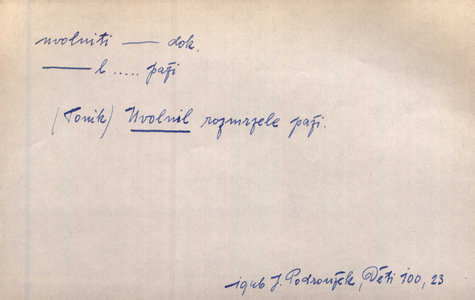 uvolniti — dok.
—— l ..... paži
(Toník) Uvolnil rozmrzele paži.
J. Podroužek, Děti 100, 23